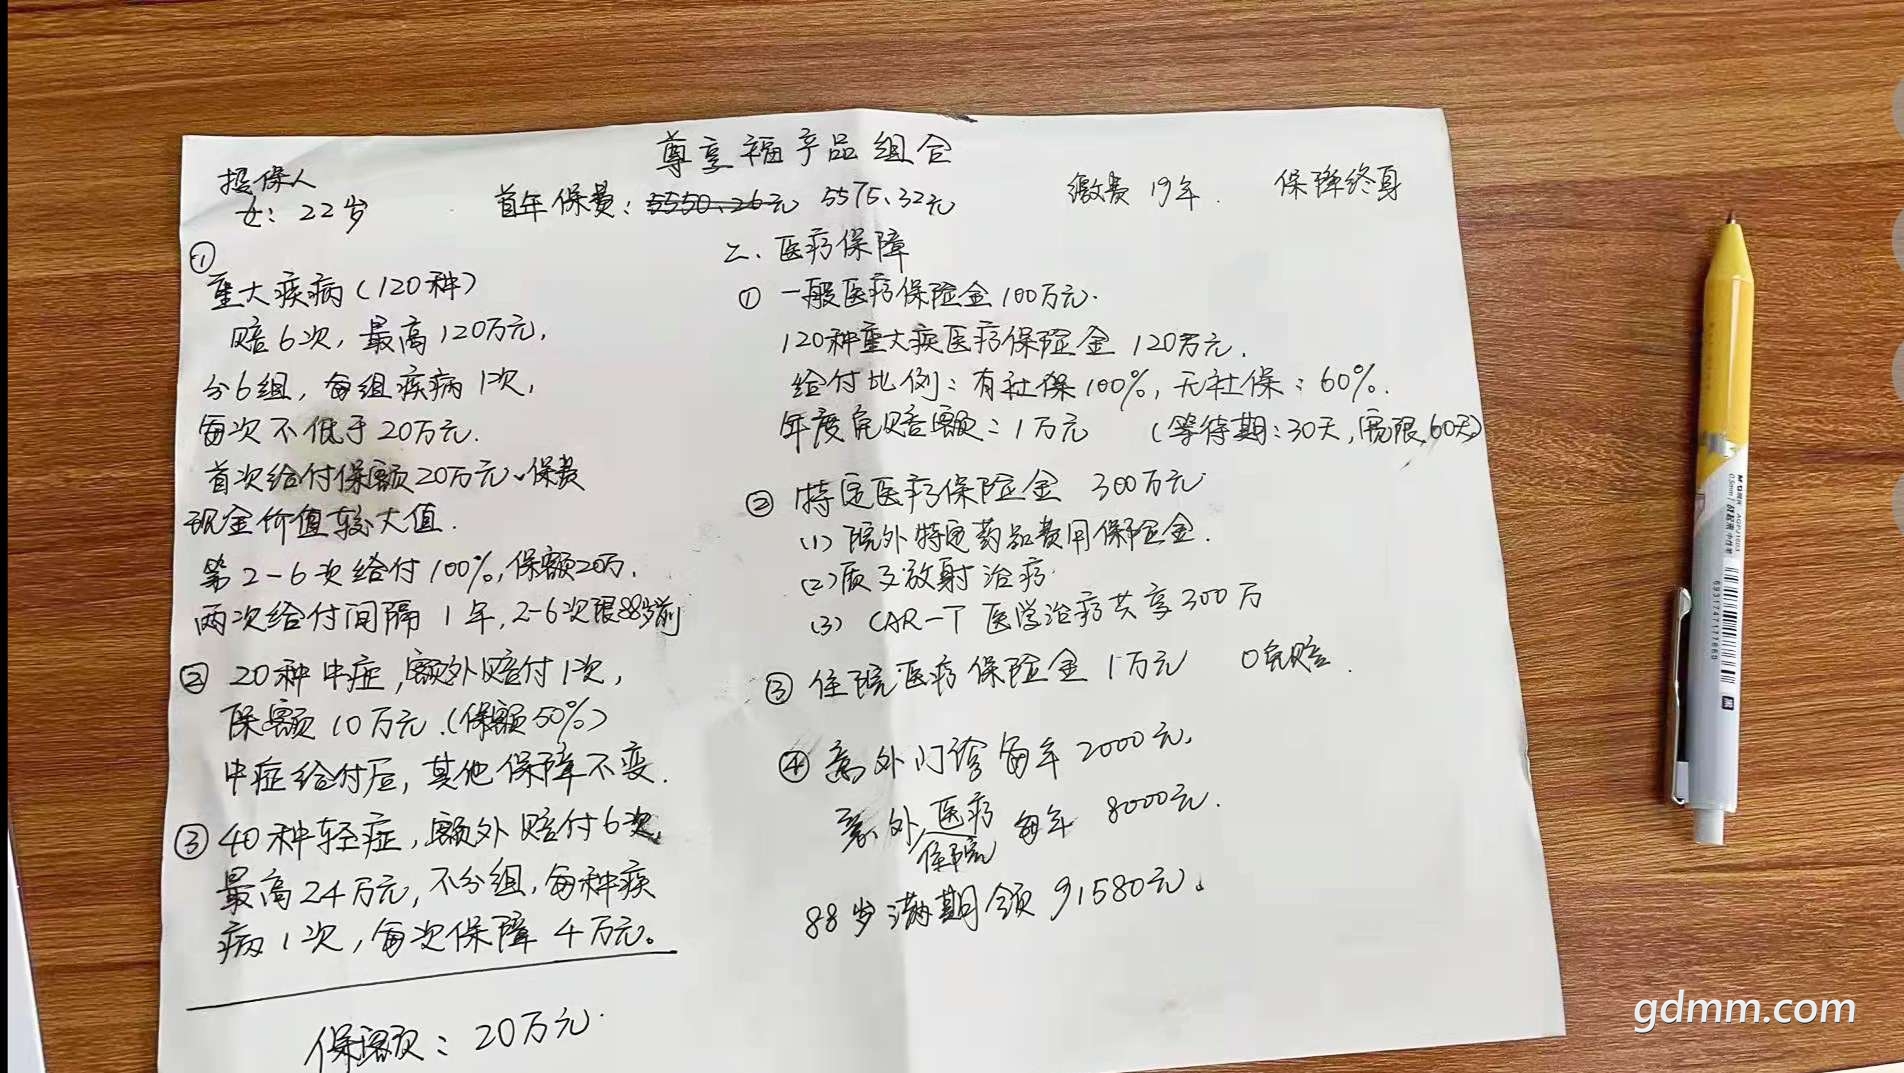 尊享福产品组合
投保人
女：22岁
首年保费：5550.26元 5575.32元
缴费19年.
保障终身
①
重大疾病（120种）
赔6次，最高120万元，
分6组，每组疾病1次，
每次不低于20万元.
首次给付保额20万元、保费
现金价值较大值.
第2-6次给付100%，保额20万，
两次给付间隔1年，2-6次限88岁前
② 20种中症，额外赔付1次，
保额10万元.（保额50%）
中症给付后，其他保障不变.
③ 40种轻症，额外赔付6次，
最高24万元，不分组，每种疾
病1次，每次保障4万元。
保额：20万元.
二、医疗保障
① 一般医疗保险金100万元.
120种重大疾医疗保险金120万元.
给付比例：有社保100%，无社保：60%.
年度免赔额：1万元
（等待期：30天，宽限60天）
② 特定医疗保险金 300万元
(1) 院外特定药品费用保险金.
(2) 质子放射治疗
(3) CAR-T医学治疗共享300万
③ 住院医疗保险金1万元 0免赔.
④ 意外门诊每年2000元，
意外医疗每年8000元.
住院
88岁满期领91580元。
M&G晨光
AGPJ1603
0.5mm
中性笔
6931747177660
黑
gdmm.com